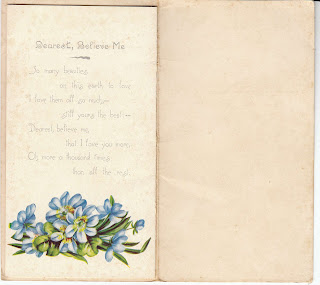 Dearest, Believe Me
So many beauties
on this earth to love
I love them all so
still
Dearest, believe me,
that I love you more,
Oh more a thousand times
than all the rest.